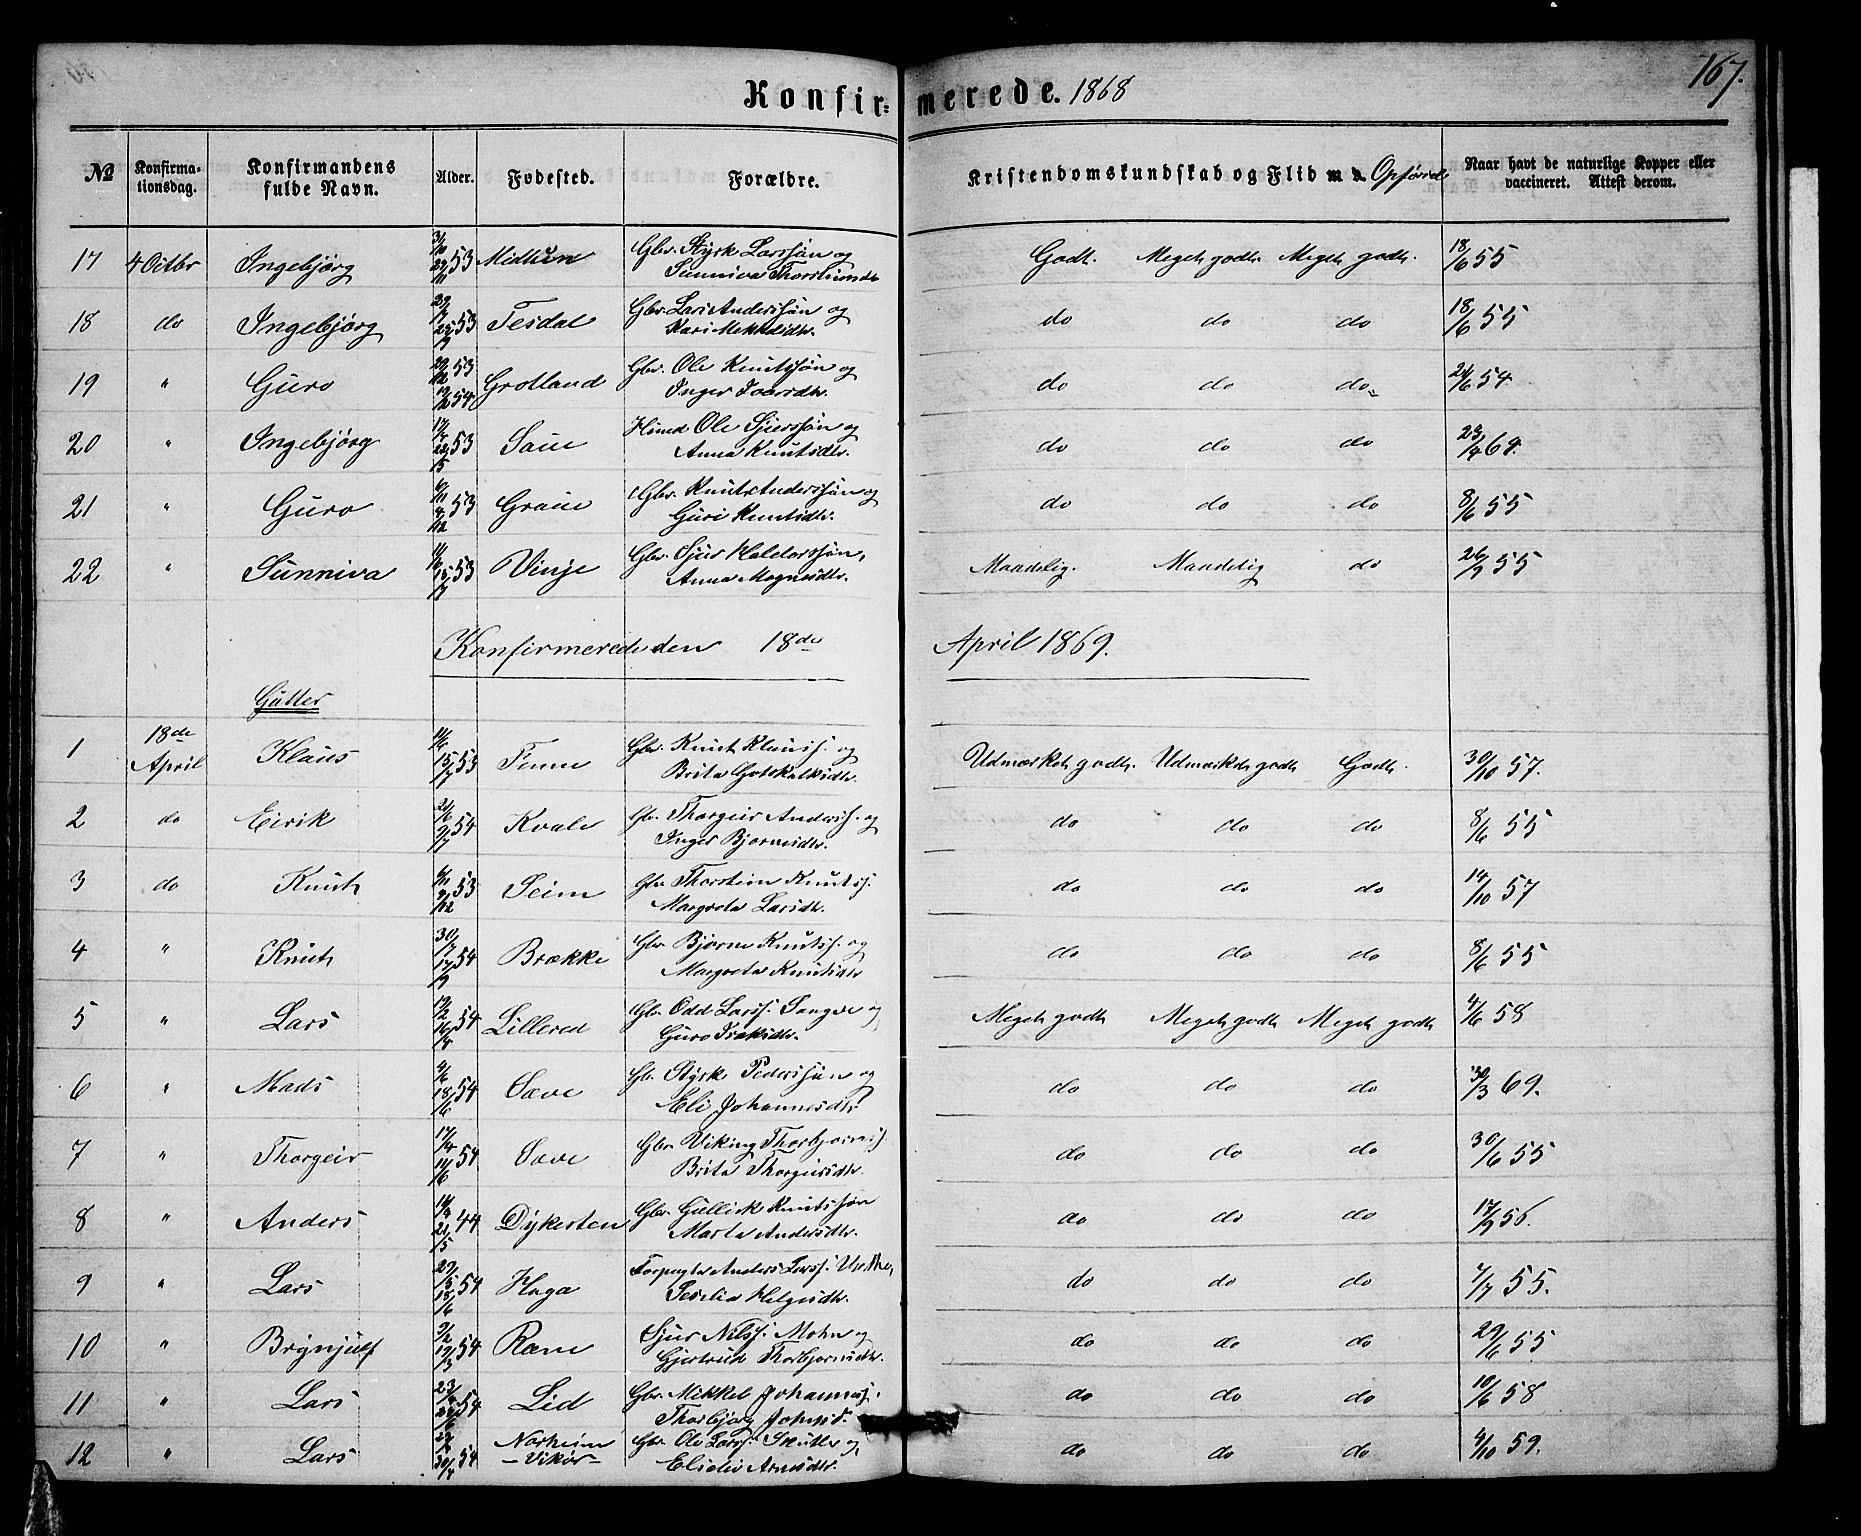 Konfirmerede. 1868
167.
No Konfirmationsdag. Konfirmandens fulde Navn. Alder. Fødested. Forældre. Kristendomskundskab og Flid m. Opførsel Naar havt de naturlige Kopper eller vaccineret. Attest derom.
17 4 Octbr Ingebjørg 53 Midtun Gbr. Styrk Larssøn og Godt. Meget godt. Meget godt. 18/6 55
Sunniva
18 do Ingebjørg 53 Tesdal Gbr. Lars Anderssøn og do do do 18/6 55
Kari
19 " Guro 29/12 53 Grotland Gbr. Ole Knutssøn og do do do 24/6 54
19/2 54 Inger
20 " Ingebjørg 53 Saue Husmd Ole Sjurssøn og do do do
Anna Knutsdtr.
21 " Guro 53 Graue Gbr. Knut Anderssøn og do do do 8/6 55
Guri Knutsdtr.
22 " Sunniva 53 Vinje Gbr. Sjur Haldorssøn, Maadelig. Maadelig do 26/9 55
Anna Magnesdtr.
Konfirmerede den 18de April 1869.
Gutter
1 18de April Klaus 53 Finne Gbr. Knut Klauss. og Udmærket godt. Udmærket godt Godt. 30/10 57.
Brita Gotskalksdtr.
2 do Eirik 54 Kvale Gbr. Thorgeir Anderss. og do do do 8/6 55
Inger Bjørnesdtr.
3 do Knut 53 Seim Gbr. Thorstein Knutss. do do do 14/10 57
Margreta Larsdtr.
4 " Knut 54 Brække Gbr. Bjørne Knutss. og do do do 8/6 55
Margreta Knutsdtr
5 " Lars 54 Lillered Gbr. Odd Larss. og Meget godt Meget godt Meget godt 4/6 58
Guro
6 " Mads 54 Sæve Gb. Styrk Pederssøn og do do do 30/3 69.
Eli Johannesdtr
7 " Thorgeir 54 Sæve Gbr. Viking Thorbjørns. do do do 30/6 55
Brita Thorgeirsdtr.
8 " Anders 44 Dykesten Gbr. Gullik Knutssøn do do do 17/9 56.
Marta Andersdtr.
9 " Lars 54 Haga Forpagter Anders Larss. do do do 4/7 55.
Sesilia Helgesdtr.
10 " Brynjulf 54 Røne Sjur Nilss. Mohn og do do do 29/6 55
Gjertrud Thorbjørnsdtr.
11 " Lars 54 Lid Gbr. Mikkel Johanness. do do do 10/6 58
Thorbjørg Johnsd.
12 " Lars 54 Norheim Gbr. Ole Larss. Skutle og do do do 4/10 59.
- Vikør - Arnesdtr.